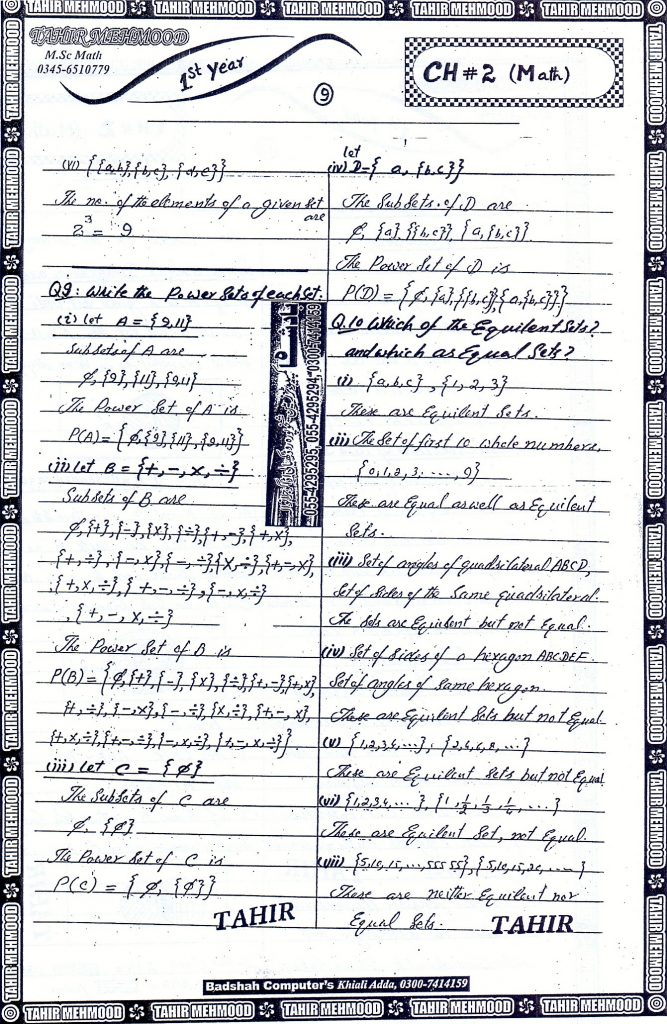 TAHIR MEHMOOD TAHIR MEHMOOD TAHIR MEHMOOD TAHIR MEHMOOD TAHIR MEHMOOD
TAHIR MEHMOOD
M.Sc Math
0345-6510779
1st Year
9
CH # 2 (Math)
(vi) {{a,b},{b,c}, {d,e}}
The no. of the elements of a given set are
2^3 = 9
Q9: Write the Power Sets of each set.
(i) let A = {9,11}
Subsets of A are
φ, {9}, {11}, {9,11}
The Power Set of A is
P(A) = {φ,{9},{11}, {9,11}}
(ii) let B = {+, −, ×, ÷}
Subsets of B are
φ,{+},{−},{×},{÷},{+,−},{+,×},
{+,÷},{−,×},{−,÷},{×,÷},{+,−,×},
{+,×,÷}, {+,−,÷},{−,×,÷}
,{+, −, ×, ÷}
The Power Set of B is
P(B) = {φ,{+},{−},{×},{÷},{+,−},{+,×},
{+,÷},{−,×},{−,÷},{×,÷},{+,−,×},
{+,×,÷},{+,−,÷},{−,×,÷},{+,−,×,÷}}
(iii) let C = {φ}
The Subsets of C are
φ, {φ}
The Power Set of C is
P(C) = {φ, {φ}}
TAHIR
055-4295295, 055-4295294, 0300-7414159
let
(iv) D={ a, {b,c}}
The Subsets of D are
φ, {a}, {{b,c}}, {a,{b,c}}.
The Power Set of D is
P(D) = {φ,{a},{{b,c}},{a,{b,c}}}
Q.10 Which of the Equilent Sets?
and which as Equal Sets?
(i) {a,b,c} , {1, 2, 3}
These are Equilent Sets.
(ii) The Set of first 10 whole numbers,
{0,1,2, 3, ...., 9}
These are Equal as well as Equilent
Sets.
(iii) Set of angles of quadrilateral ABCD,
Set of sides of the Same quadrilateral.
The Sets are Equilent but not Equal.
(iv) Set of Sides of a hexagon ABCDEF.
Set of angles of Same hexagon
These are Equilent Sets but not Equal.
(v) {1,2,3,4,...}, {2,4,6,8,...}
These are Equilent Sets but not Equal
(vi) {1,2,3,4,....}, {1, 1/2, 1/3, 1/4, ....}
These are Equilent Set, not Equal.
(vii) {5,10,15,...,55555}, {5,10,15,20, ......}
These are neither Equilent nor
Equal Sets.
TAHIR
Badshah Computer's Khiali Adda, 0300-7414159
TAHIR MEHMOOD TAHIR MEHMOOD TAHIR MEHMOOD TAHIR MEHMOOD TAHIR MEHMOOD